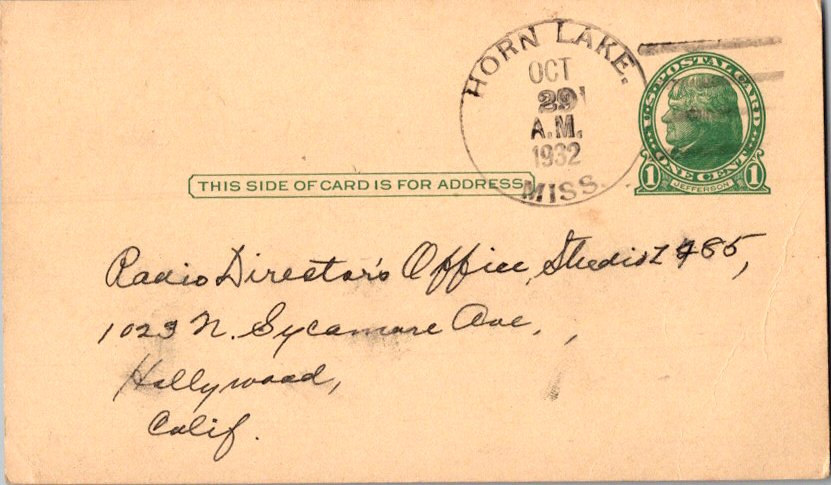 HORN LAKE.
OCT
29
A.M.
1932
MISS.
U.S. POSTAL CARD
ONE CENT
1 JEFFERSON 1
THIS SIDE OF CARD IS FOR ADDRESS
Radio Director's Office, Studio 485,
1023 N. Sycamore Ave,
Hollywood,
Calif.